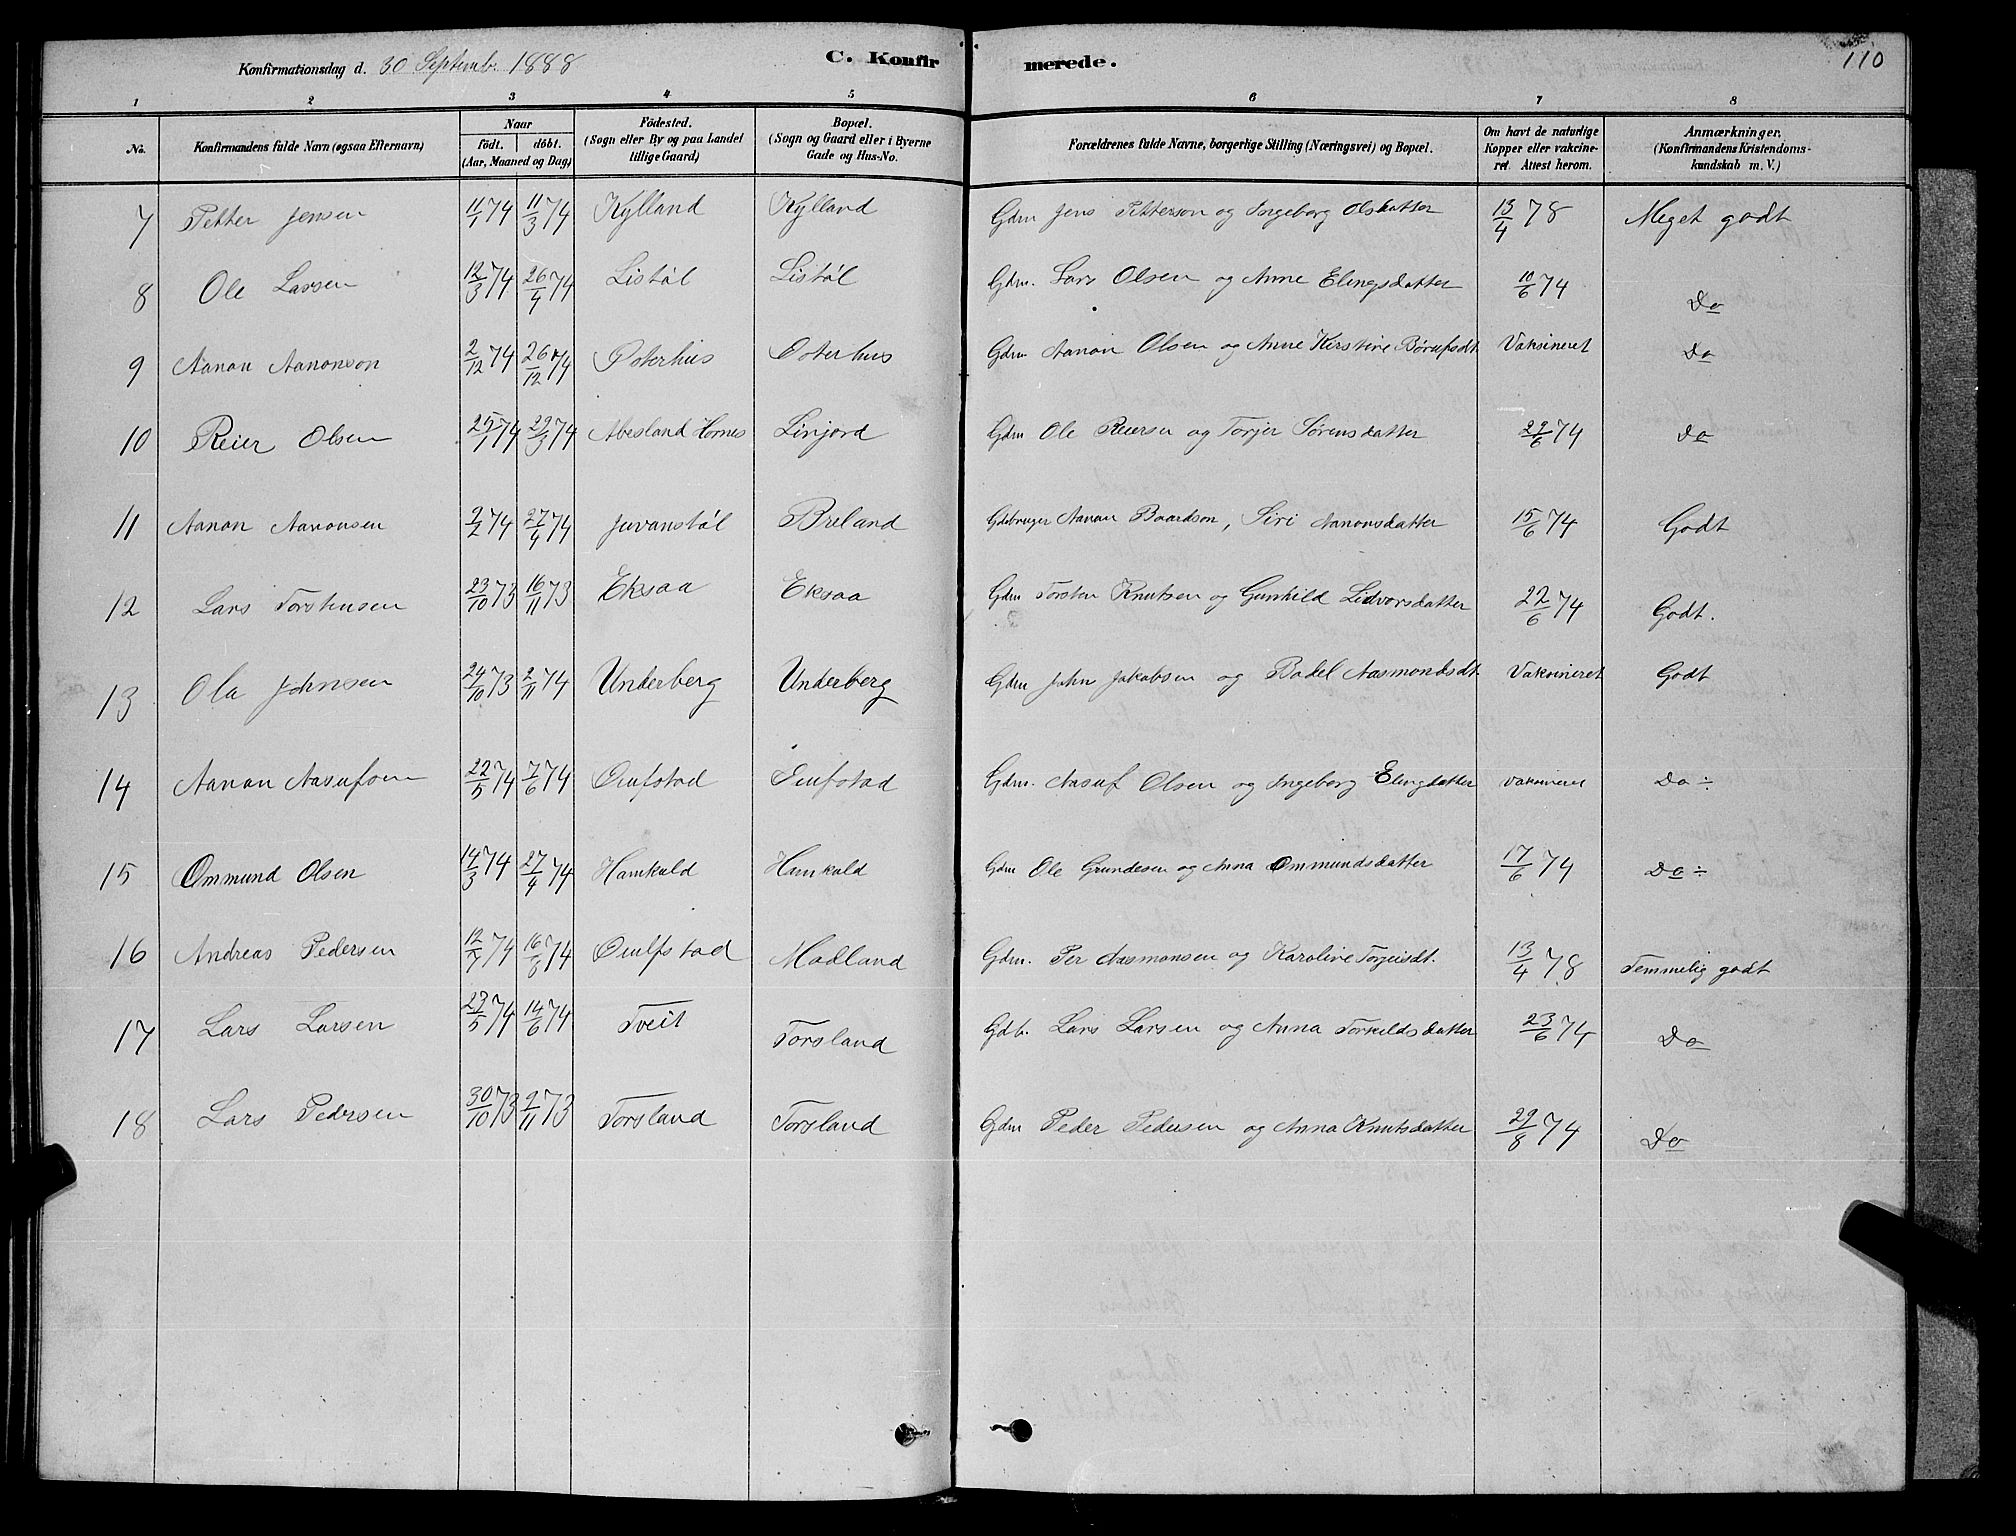 Konfirmationsdag d. 30 Septembr 1888 C. Konfirmerede. 110
1 2 3 4 5 6 7 8
No. Konfirmandens fulde Navn (ogsaa Efternavn) Naar födt. döbt. (Aar, Maaned og Dag) Födested. (Sogn eller By og paa Landet tillige Gaard) Bopæl. (Sogn og Gaard eller i Byerne Gade og Hus-No. Forældrenes fulde Navne, borgerlige Stilling (Næringsvei) og Bopæl. Om havt de naturlige Kopper eller vakcineret. Attest herom. Anmærkninger. (Konfirmandens Kristendomskundskab m. V.)
7 Petter Jensen 11/1 74 11/3 74 Kylland Kylland Gdm Jens Petterson og Ingeborg Olsdatter 13/4 78 Meget godt
8 Ole Larsen 12/3 74 26/4 74 Listöl Listöl Gdm. Lars Olsen og Anne Elingsdatter 10/6 74 Do
9 Aanon Aanonson 2/12 74 26/12 74 Osterhus Osterhus Gdm Aanon Olsen og Anne Kirstine Börufsdt. Vaksineret Do
10 Reier Olsen 25/1 74 29/3 74 Abesland Hornes Linjord Gdm Ole Reiersen og Torjer Sörensdatter 29/6 74 Do
11 Aanon Aanonsen 2/2 74 27/4 74 Juvanstöl Breland Gdebruger Aanon Baardson, Siri Aanonsdatter 15/6 74 Godt
12 Lars Torstensen 23/10 73 16/11 73 Eksaa Eksaa Gdm Torsten Knutsen og Gunhild Lidvorsdatter 22/6 74 Godt.
13 Ola Johnsen 24/10 73 2/11 74 Underberg Underberg Gdm John Jakobsen og Bodel Aasmondsdt. Vaksineret Godt
14 Aanon Aasufsen 22/5 74 7/6 74 Oufstad Oufstad Gdm. Aasuf Olsen og Ingeborg Elingdatter Vaksineret Do ÷
15 Ommund Olsen 14/3 74 27/4 74 Hamkold Hamkold Gdm Ole Gundesen og Anna Ommundsdatter 17/6 74 Do ÷
16 Andreas Pedersen 12/7 74 16/8 74 Oulfstad Modland Gdm. Per Aasmonsen og Karoline Torjeisdt. 13/4 78 Temmelig godt
17 Lars Larsen 23/5 74 14/6 74 Tveit Torsland Gdb. Lars Larsen og Anna Torkildsdatter 23/6 74 Do
18 Lars Pedersen 30/10 73 2/11 73 Torsland Torsland Gdm Peder Pedersen og Anna Knutsdatter 29/8 74 Do